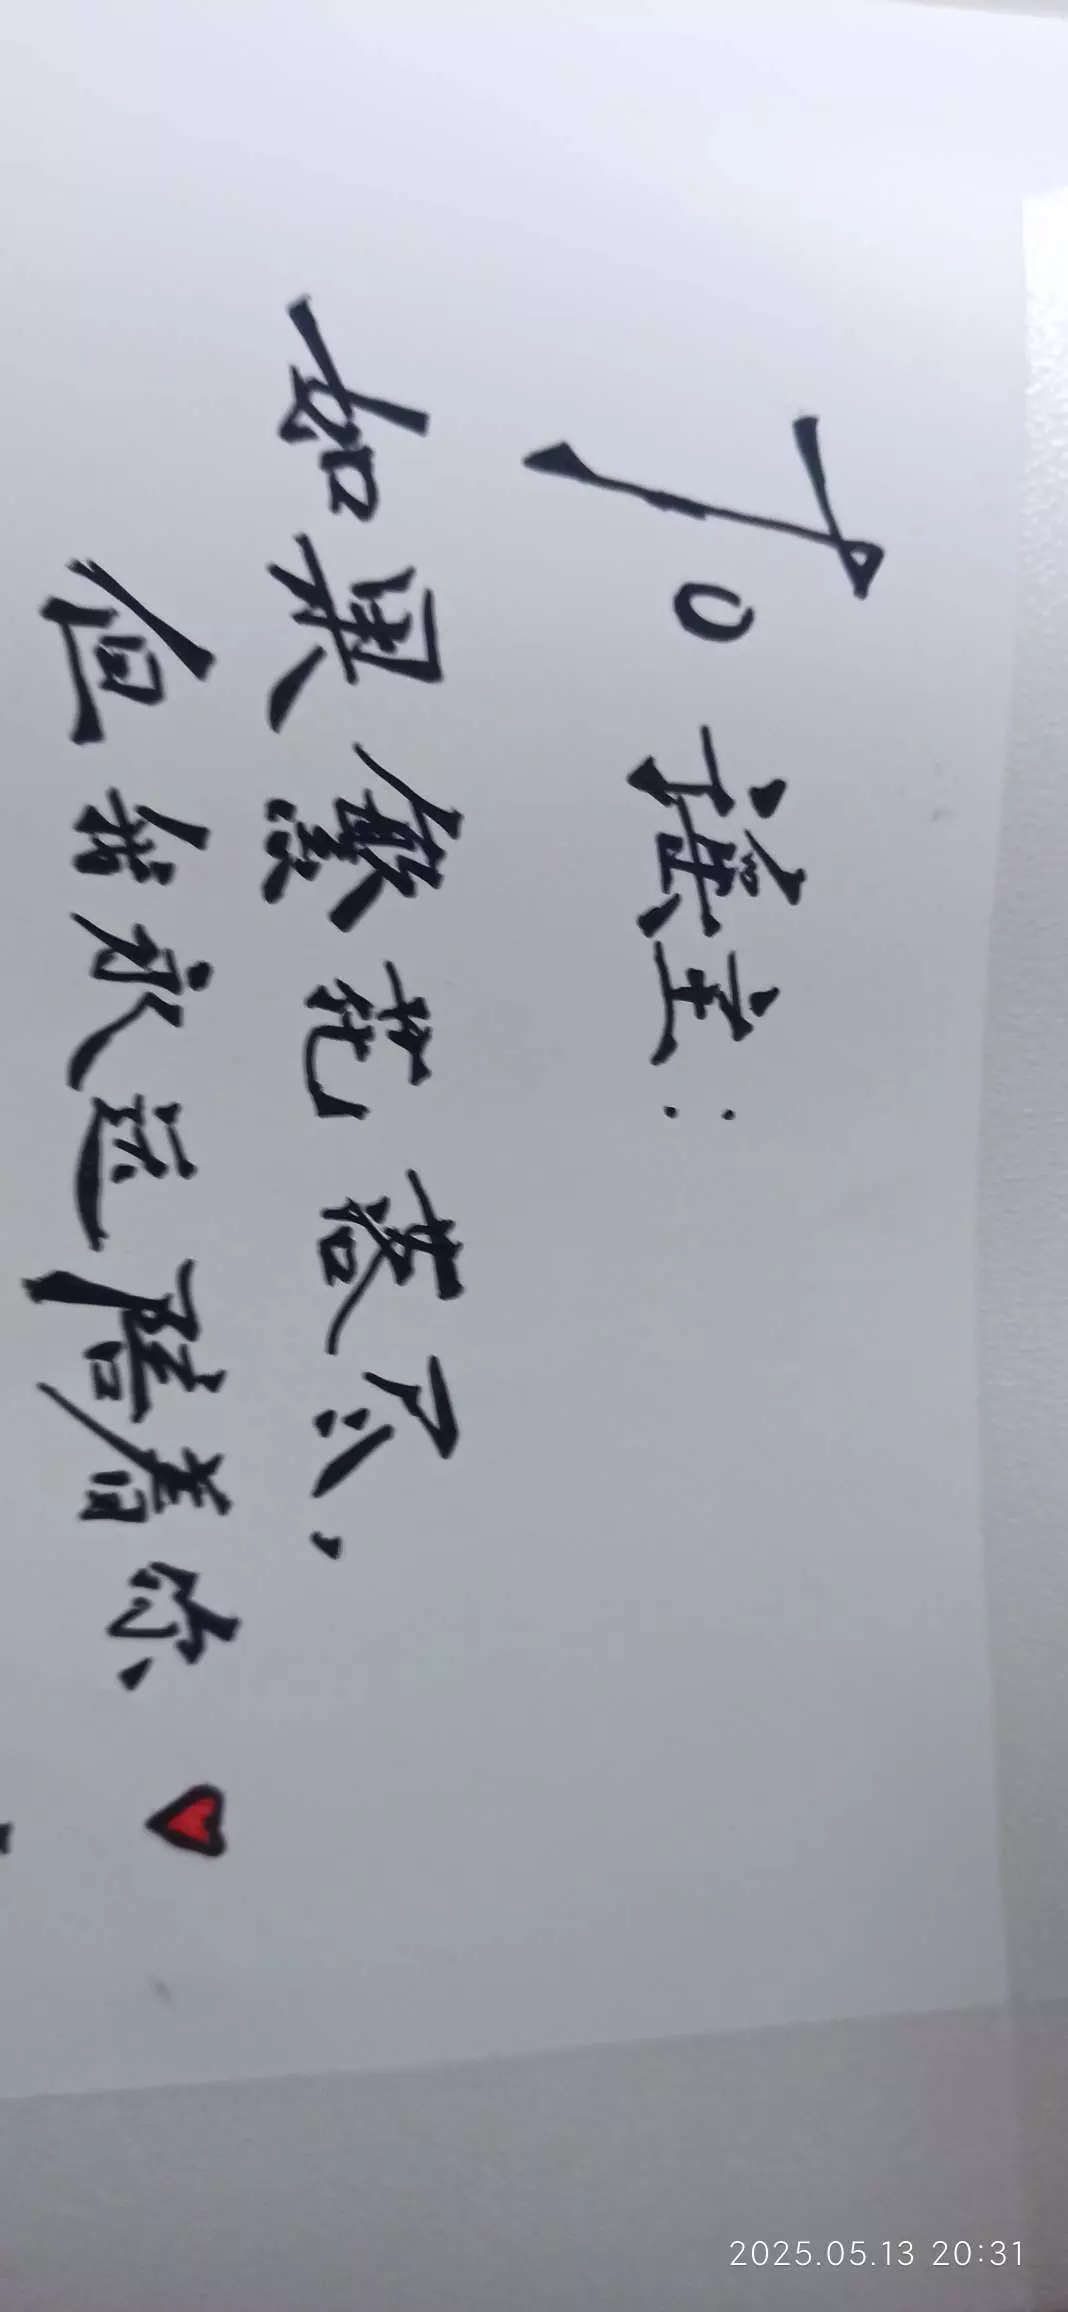 To 主:
如果繁花落尽,
但我永远陪着你
2025.05.13 20:31